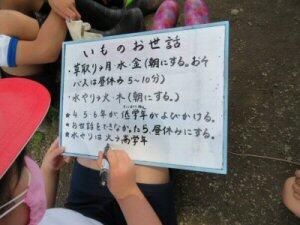 いものお世話
・草取り→月・水・金(朝にする。おそ
バスは昼休み5~10分)
・水やり→火・木(朝にする。)
★4.5.6年が低学年がよびかける。
★お世話をできなかったら、昼休みにする。
★水やりは火→高学年